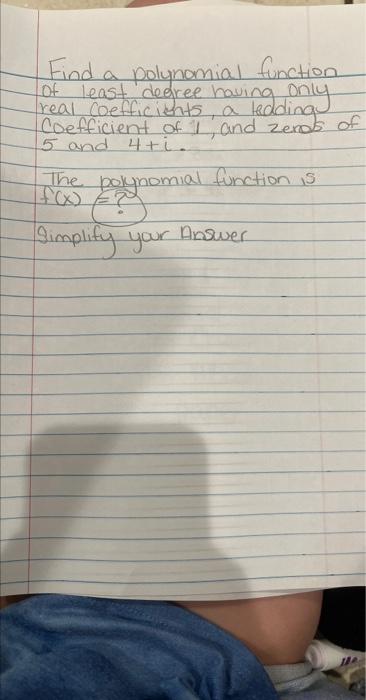 Find a polynomial function
of least degree having only
real coefficients, a leading
Coefficient of 1, and zeros of
5 and 4+i.
The polynomial function is
f(x) = ?
Simplify your Answer